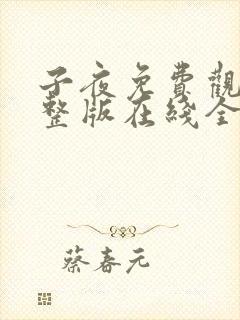 子夜免費觀
整版在綫全
蔡春元